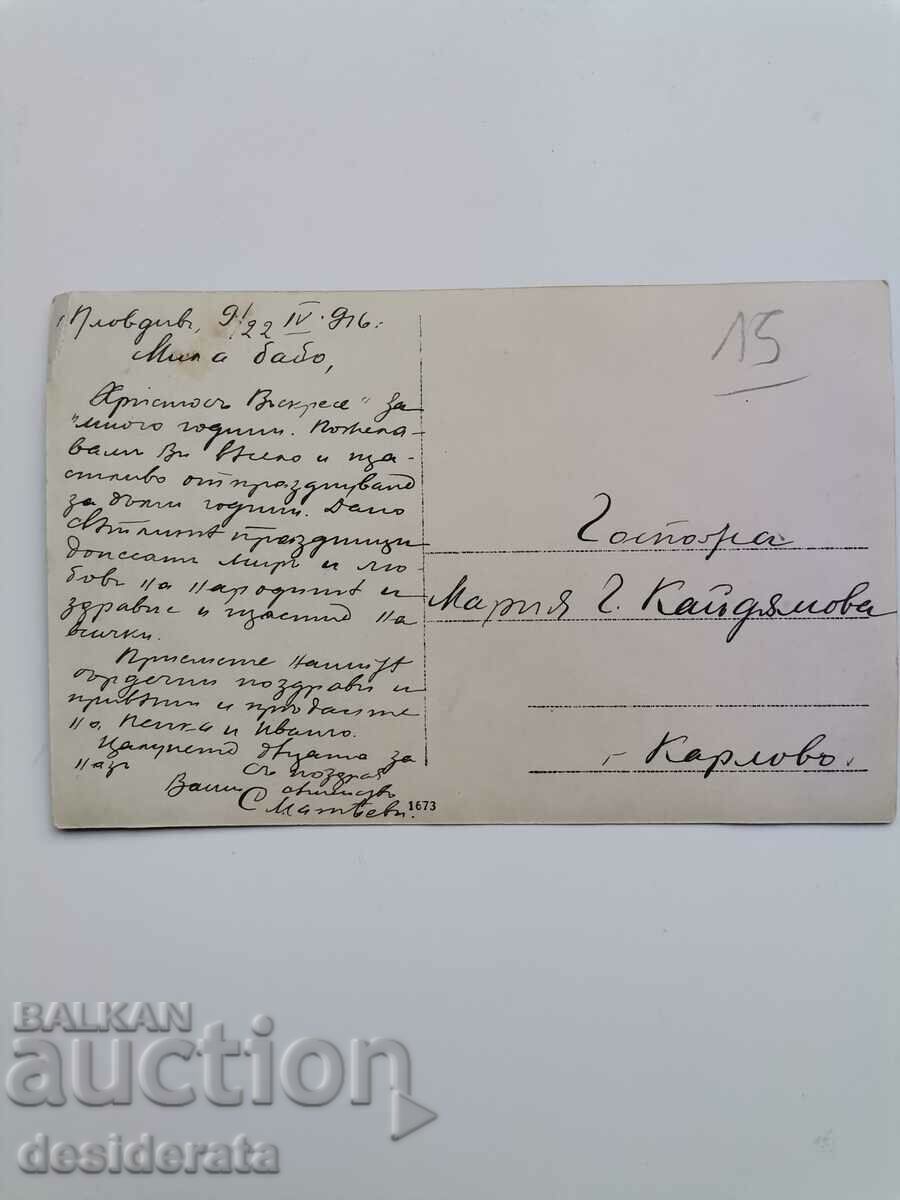 Пловдивъ, 9/22 IV. 916.
Мила бабо,
"Христосъ Воскресе" за
много години. Пожела-
вали Ви весело и ща-
стливо отпразднувание
за дълги години. Дано
свѣтлитѣ праздници
донесатъ миръ и лю-
бовь на народитѣ и
здравие и щастие на
всички.
Приемете нашитѣ
сърдечни поздрави и
привѣти и предайте
на Пенка и Иванчо.
Цалунете децата за
насъ
Съ поздрав
Ваши семейство
С Матѣеви.
1673
15
Госпожа
Мария Г. Кайдямова
г. Карлово.
BALKAN
auction
desiderata